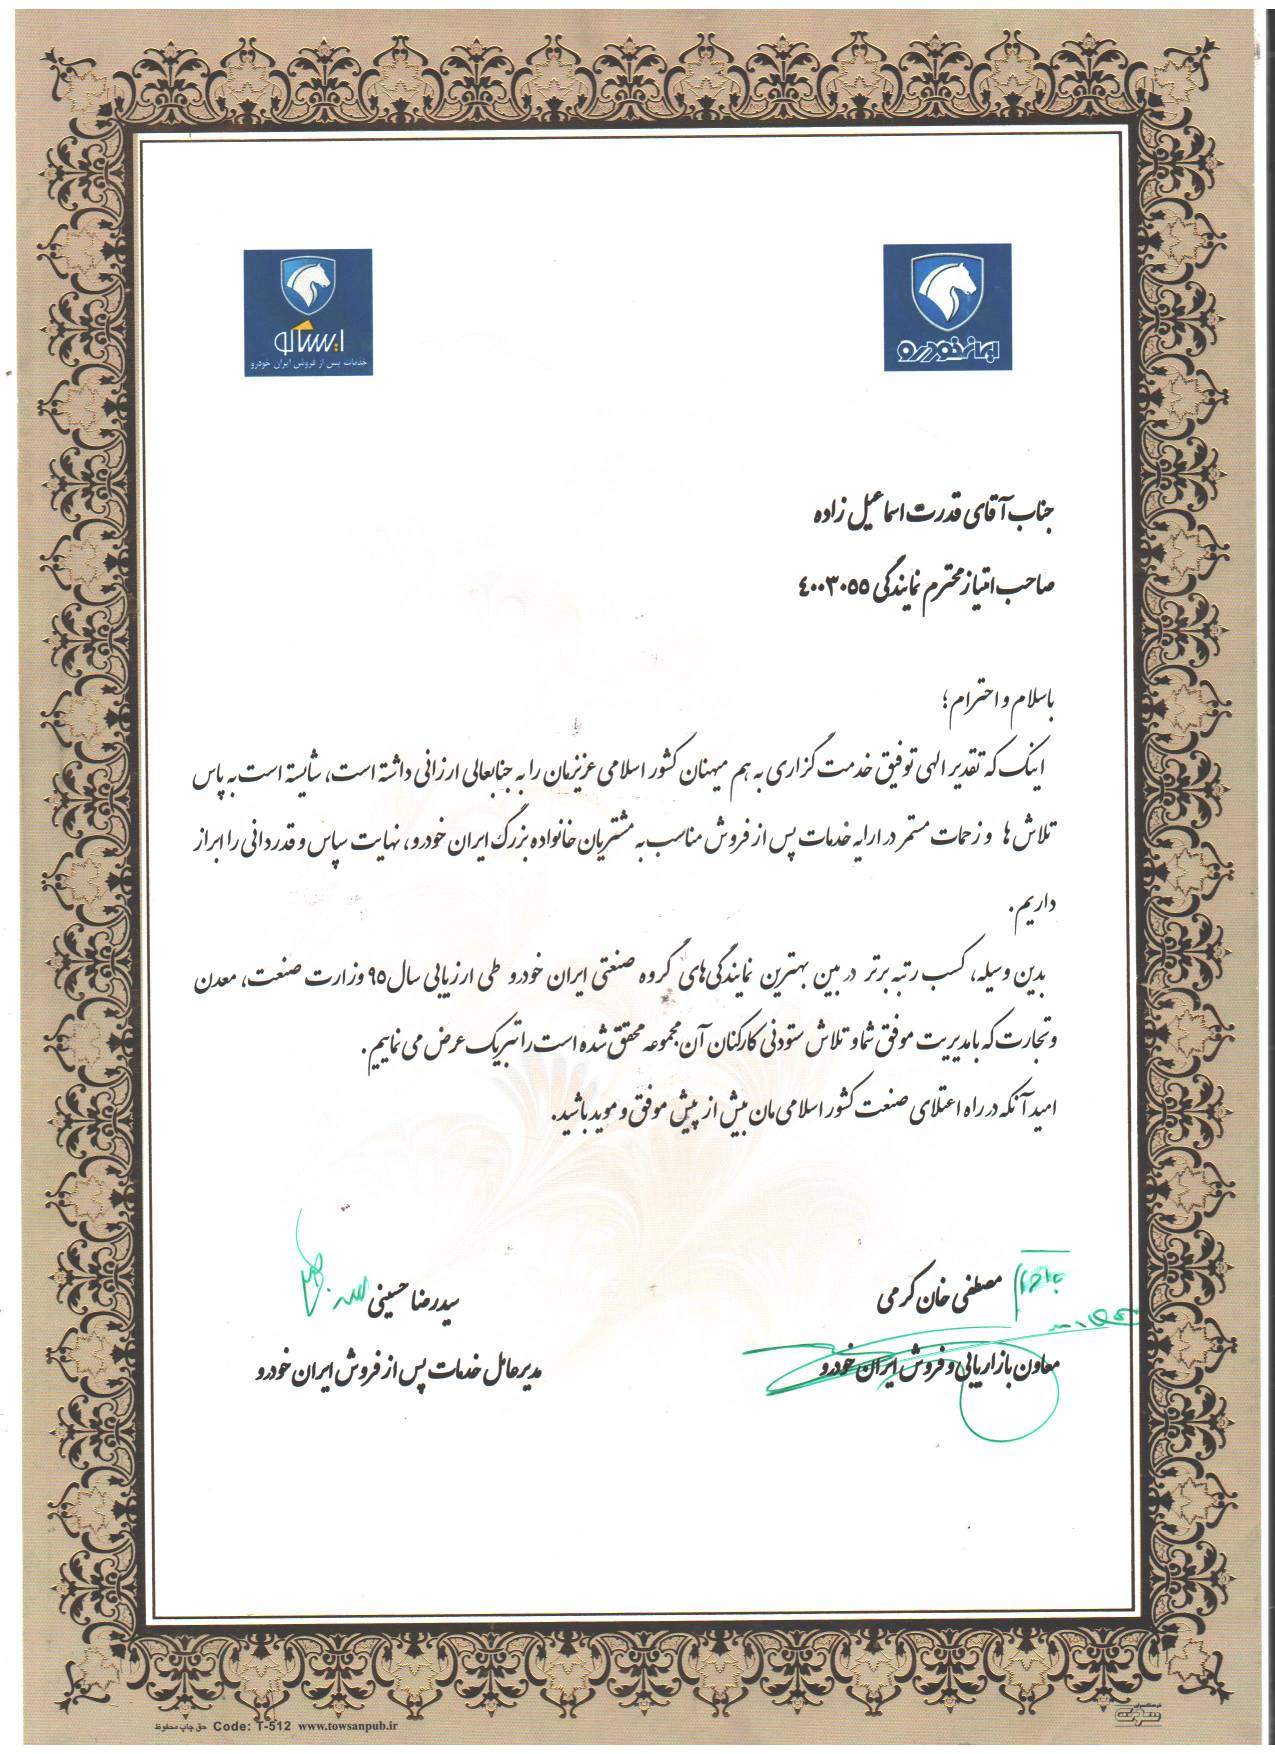 ایران خودرو
ایساکو
خدمات پس از فروش ایران خودرو
جناب آقای قدرت اسماعیل زاده
صاحب امتیاز محترم نمایندگی ۴۰۰۳۰۵۵
باسلام و احترام؛
اینک که تقدیر الهی توفیق خدمت گزاری به هم میهنان کشور اسلامی عزیزمان را به جنابعالی ارزانی داشته است، شایسته است به پاس
تلاش ها و زحمات مستمر در ارایه خدمات پس از فروش مناسب به مشتریان خانواده بزرگ ایران خودرو، نهایت سپاس و قدردانی را ابراز
داریم.
بدین وسیله، کسب رتبه برتر در بین بهترین نمایندگی‌های گروه صنعتی ایران خودرو طی ارزیابی سال ۹۵ وزارت صنعت، معدن
و تجارت که با مدیریت موفق شما و تلاش ستودنی کارکنان آن مجموعه محقق شده است را تبریک عرض می نماییم.
امید آنکه در راه اعتلای صنعت کشور اسلامی مان بیش از پیش موفق و موید باشید.
مصطفی خان کرمی
سیدرضا حسینی
معاون بازاریابی و فروش ایران خودرو
مدیرعامل خدمات پس از فروش ایران خودرو
حق چاپ محفوظ Code: T-512 www.towsanpub.ir